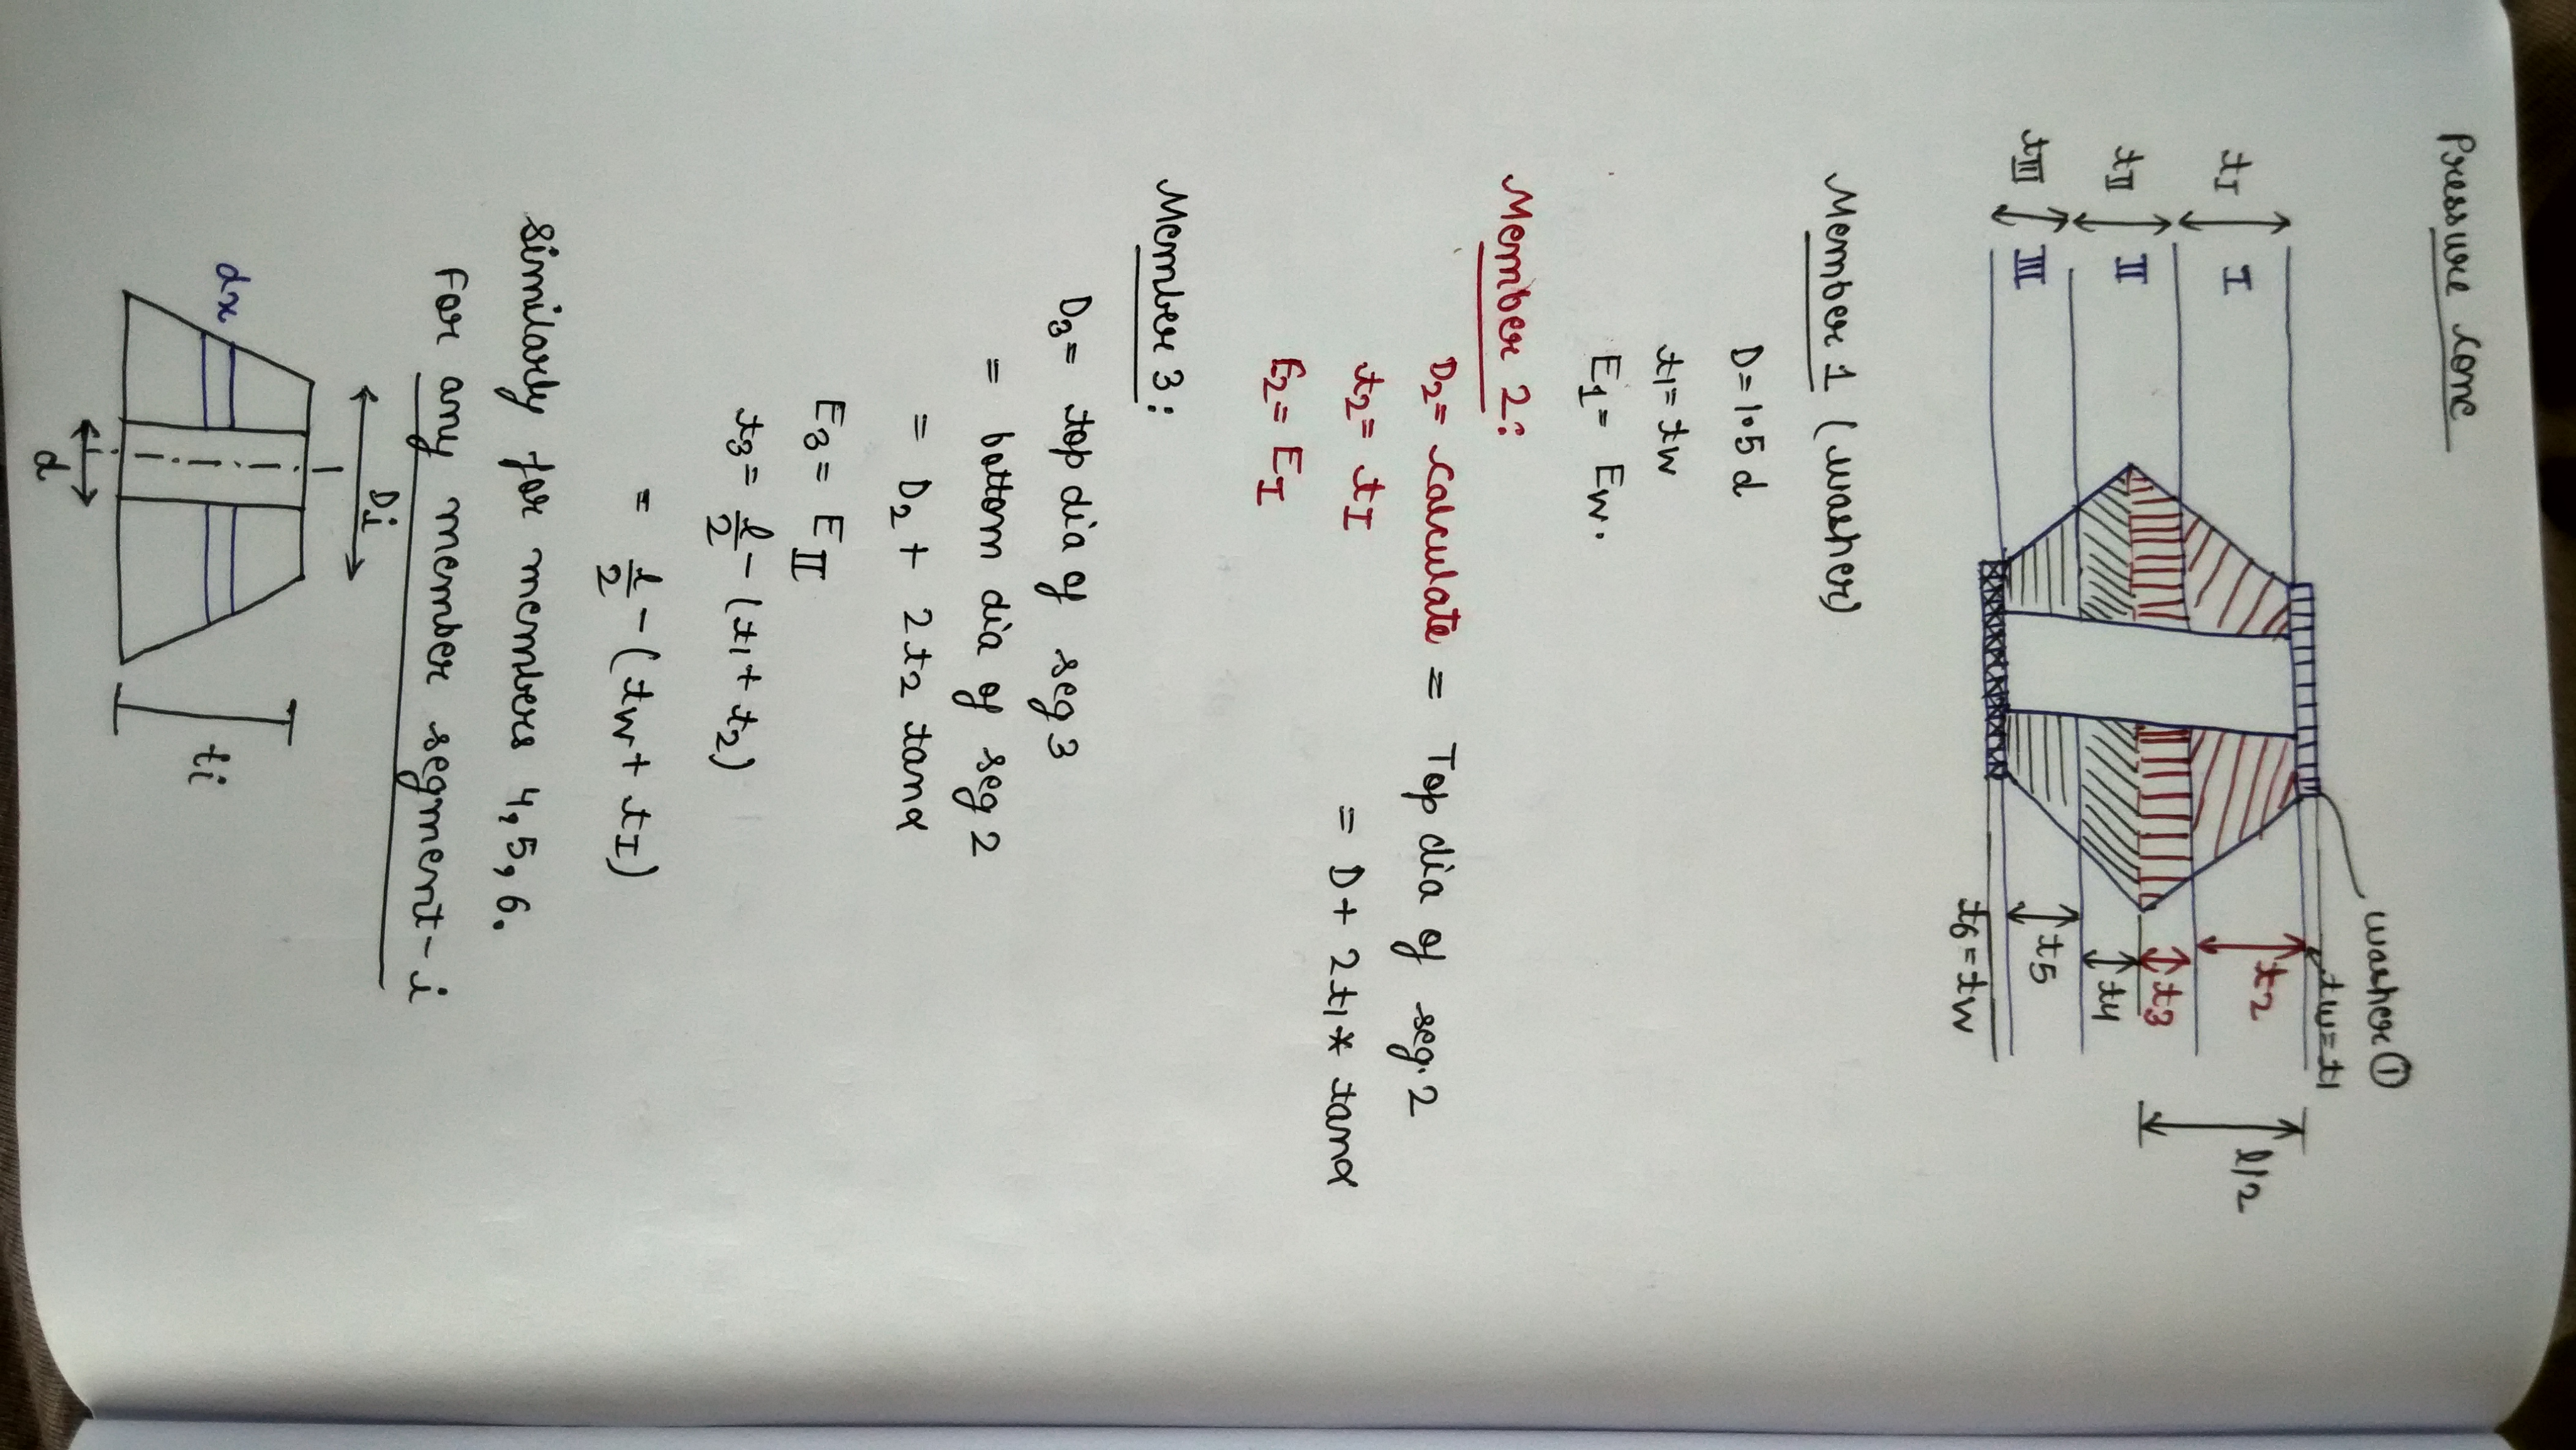 Pressure cone
washer ①
tw=t1
t2
l/2
tI
I
t3
tII
II
t4
tIII
III
t5
t6=tw
Member 1 (washer)
D=1.5 d
t1= tw
E1= Ew.
Member 2:
D2= calculate = Top dia of seg. 2
t2= tI
= D+ 2t1* tanα
E2= EI
Member 3:
D3= top dia of seg 3
= bottom dia of seg 2
= D2+ 2t2 tanα
E3= EII
t3= l/2 - (t1+ t2)
= l/2 - (tw+ tI)
Similarly for members 4, 5, 6.
For any member segment- i
Di
dx
ti
d